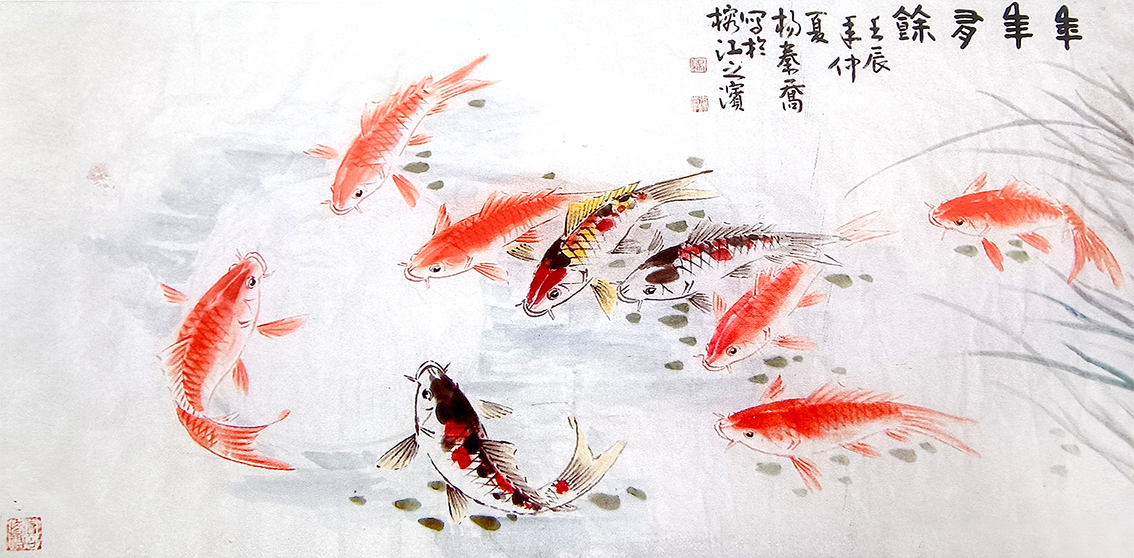 年年有餘
壬辰
年仲
夏
杨秦喬
写於
榕江之濱